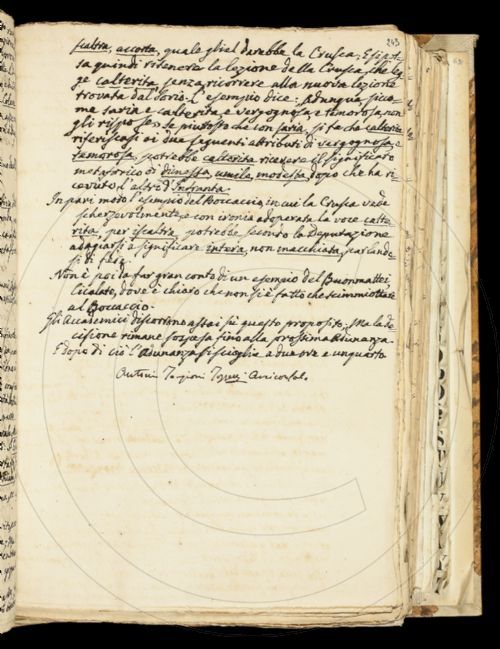 243
scaltra, accorta, quale gliel darebbe la Crusca. E si pos
sa quindi ritenere la lezione della Crusca, che leg
ge calterita senza ricorrere alla nuova lezione
trovata dal Sorio. L'esempio dice: Adunque sicco
me savia e calterita, e vergognosa, e temorosa, non
gli rispose; se piuttosto che con savia, si fa che calterita
riferiscasi ai due seguenti attributi di vergognosa, e
temorosa, potrebbe calterita ricevere il significato
metaforico di umile, modesta dopo che ha ri
cevuto l'altro d'Infranta.
In pari modo l'esempio del Boccaccio, in cui la Crusca vede
scherzevolmente, e con ironia adoperata la voce calte
rita per iscaltra, potrebbe secondo la Deputazione
adagiarsi a significare intera, non macchiata, parlando
si di fede.
Non è poi da far gran conto di un esempio del Buonmattei,
Cicalate, dove è chiaro che non si è fatto che scimmiottare
al Boccaccio.
Gli Accademici discorrono assai su questo proposito; Ma la de
cisione rimane sospesa fino alla prossima Adunanza.
E dopo di ciò l'Adunanza si scioglie a due ore e un quarto
Antonio Targioni Tozzetti Arciconsolo